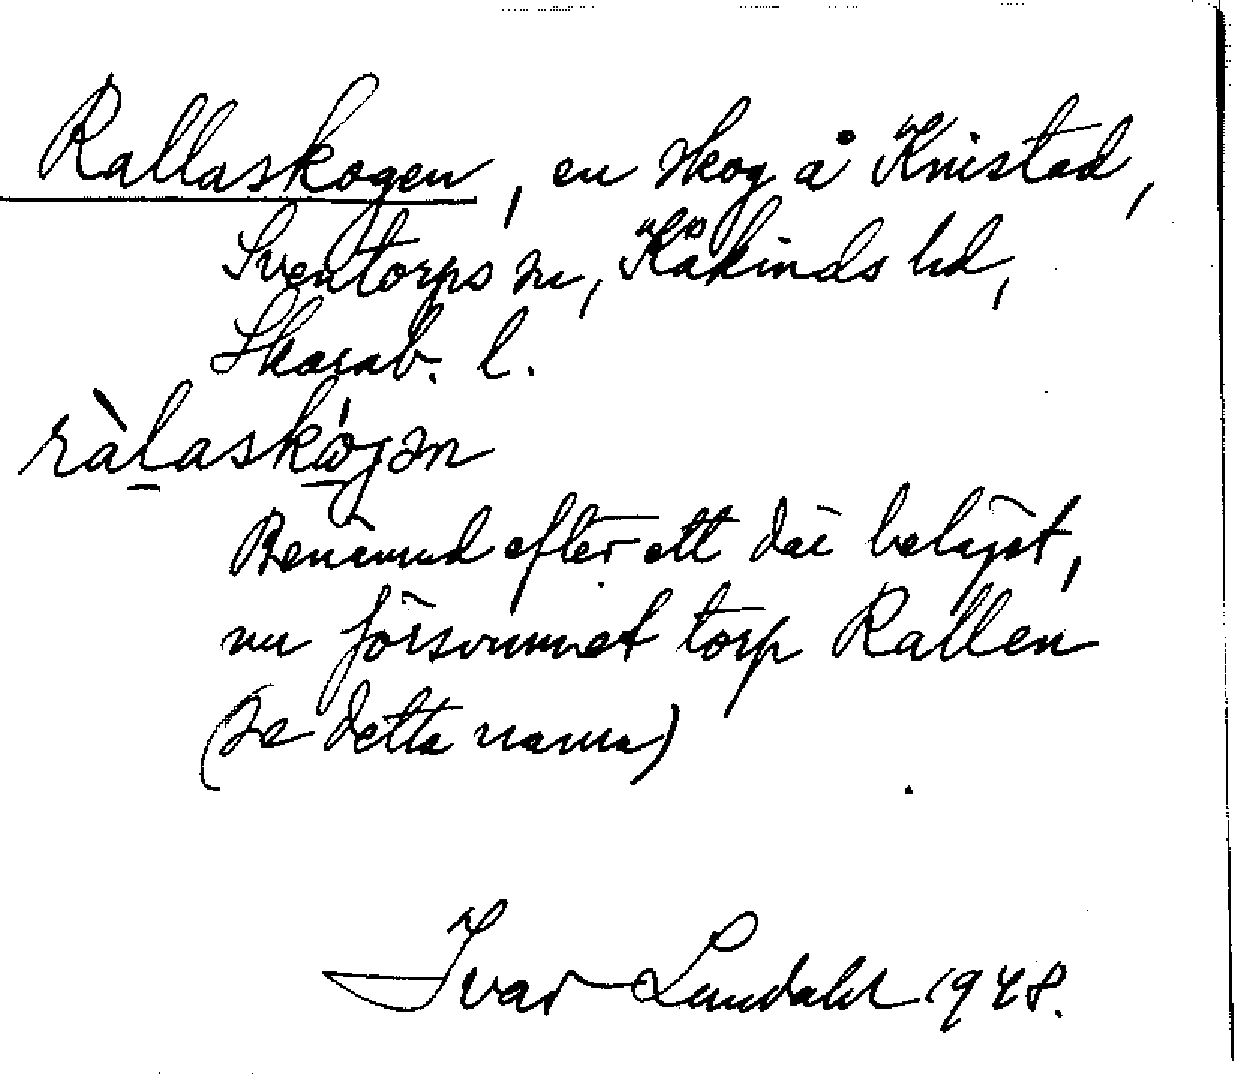 Rallaskogen, en skog å Knistad,
Sventorps sn, Kåkinds hd,
Skarab. l.
ràl̠askɷ̠́gən
Benämnd efter ett där beläget,
nu försvunnet torp Rallen
(se detta namn)
Ivar Lundahl 1948.